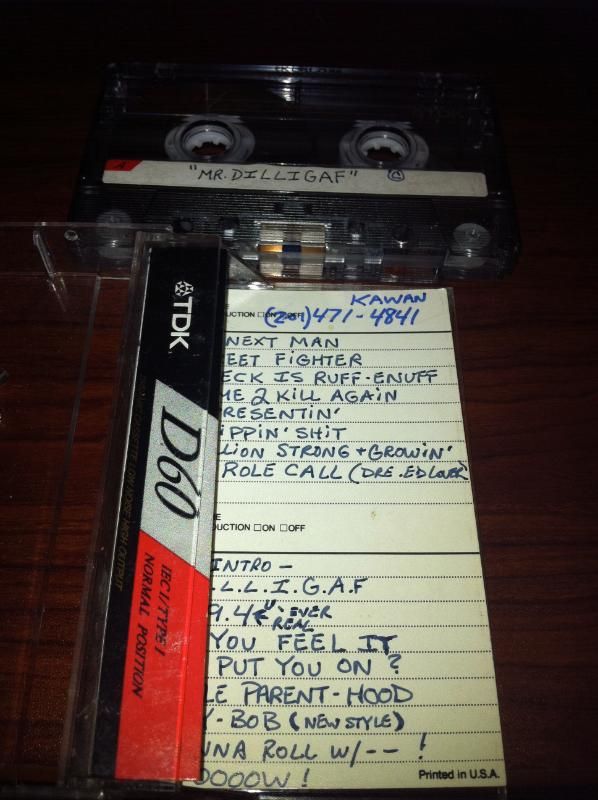 A
"MR. DILLIGAF" ©
TDK
D60
IEC I/TYPE I
NORMAL POSITION
KAWAN
(201)471-4841
UCTION □ON □OFF
NEXT MAN
EET FIGHTER
ECK IS RUFF ENUFF
ME 2 KILL AGAIN
RESENTIN'
IPPIN' SHIT
LION STRONG + GROWIN'
ROLE CALL (DRE. ED LOVER)
E
DUCTION □ON □OFF
INTRO -
.L.L.I.G.A.F
9.4 EVER
REAL
YOU FEEL IT
PUT YOU ON ?
LE PARENT-HOOD
Y-BOB (NEW STYLE)
NNA ROLL W/-- !
OOOOW !
Printed in U.S.A.